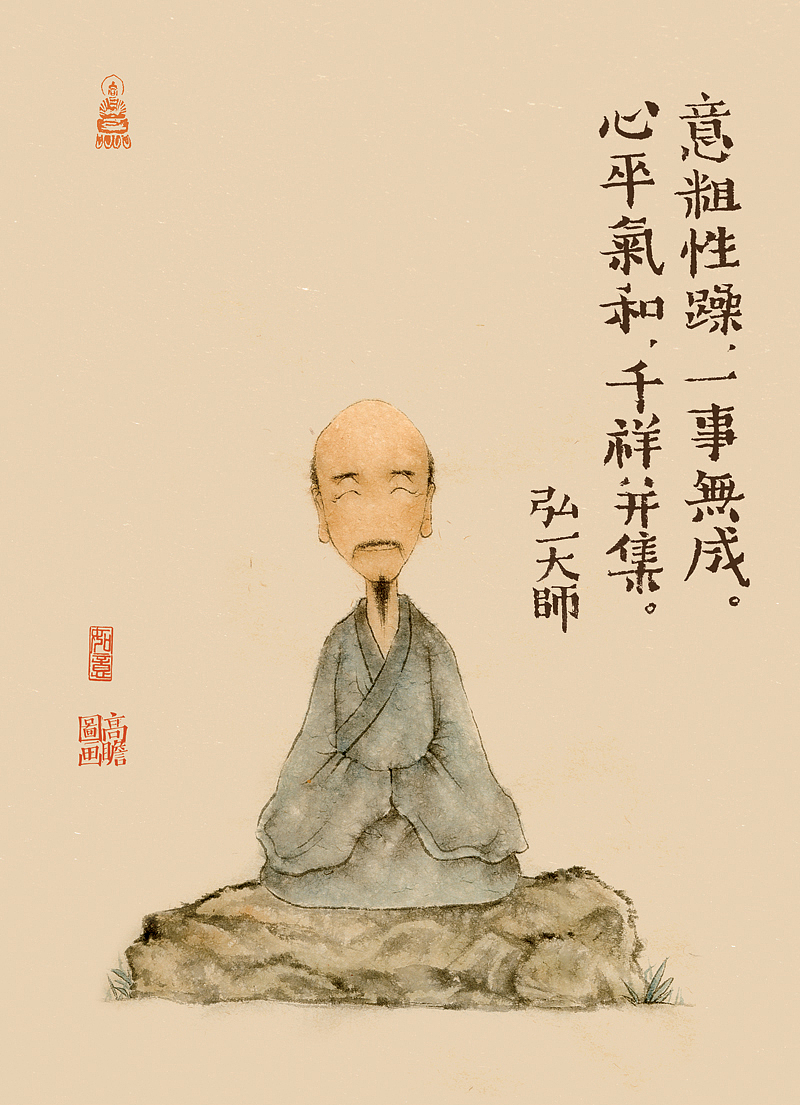 意粗性躁，一事無成。
心平氣和，千祥并集。
弘一大師
如意
高瞻
圖画